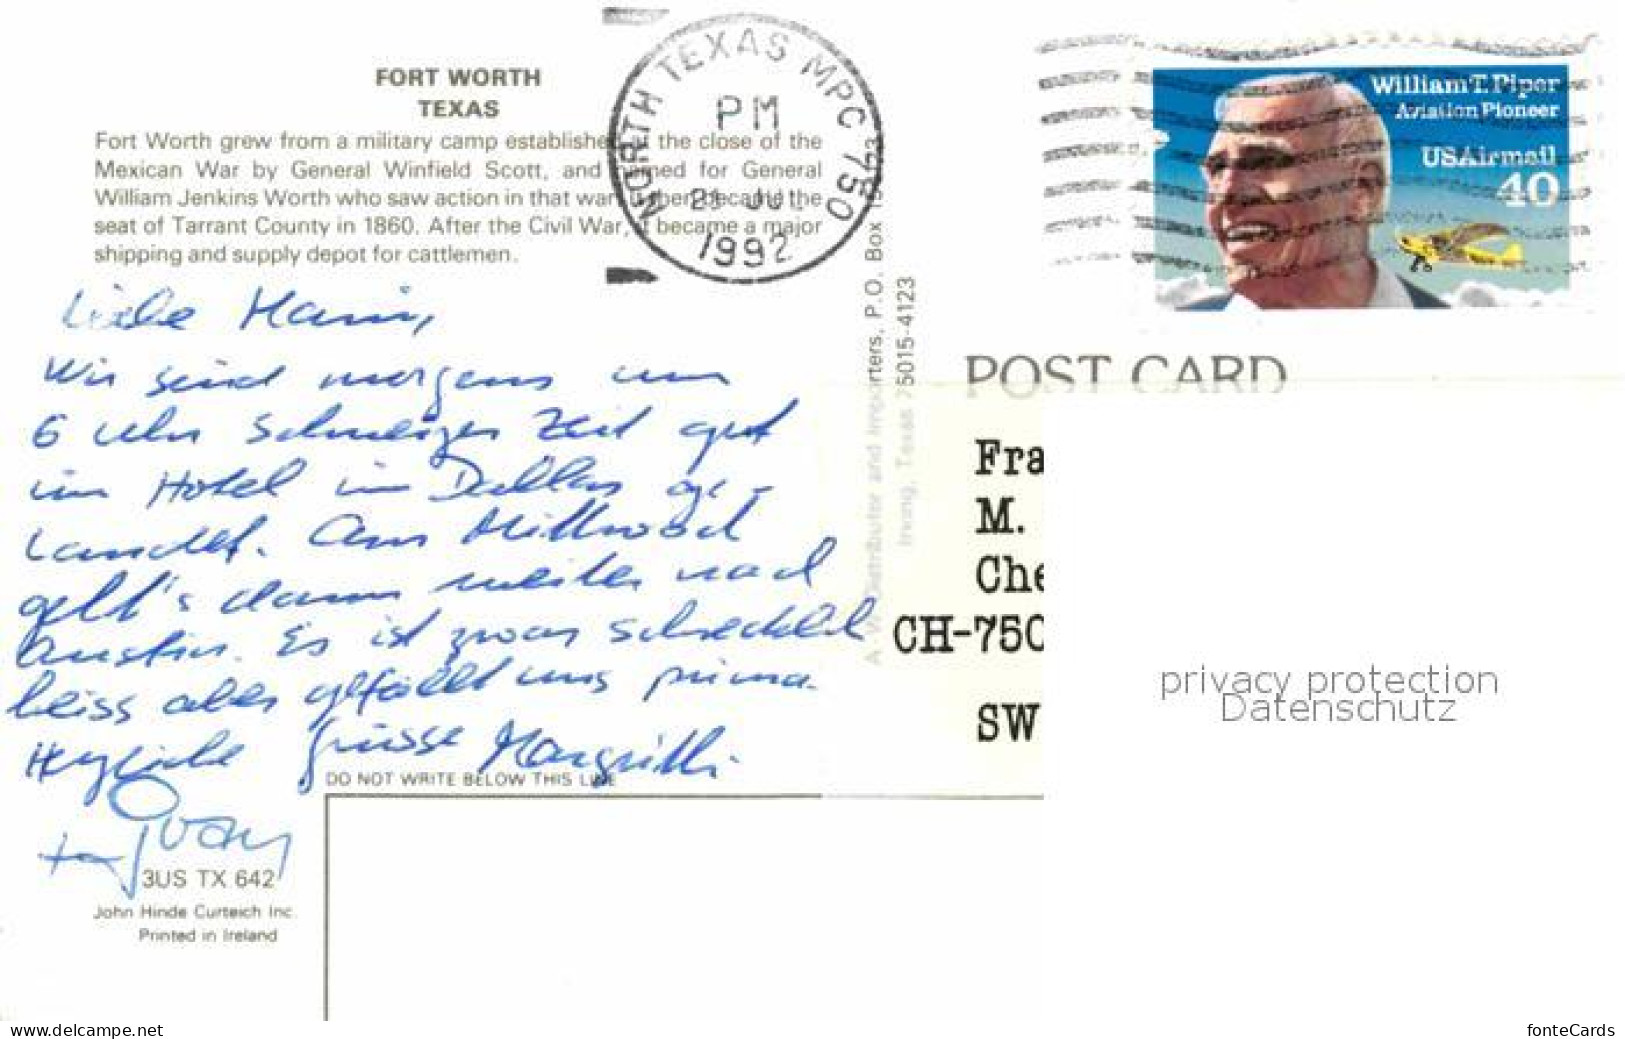 FORT WORTH
TEXAS
Fort Worth grew from a military camp established the close of the
Mexican War by General Winfield Scott, and named for General
William Jenkins Worth who saw action in that war. became the
seat of Tarrant County in 1860. After the Civil War, it became a major
shipping and supply depot for cattlemen.
NORTH TEXAS MPC 750
PM
21 JUL
1992
William T. Piper
Aviation Pioneer
USAirmail
40
Liebe
Wir sind morgens um
6 Uhr Schweizer Zeit gut
im Hotel in Dallas ge-
landet. Am Mittwoch
geht's dann weiter nach
Austin. Es ist zwar schrecklich
heiss aber gefällt uns prima.
Herzliche Grüsse Margritli
DO NOT WRITE BELOW THIS LINE
3US TX 642
John Hinde Curteich Inc.
Printed in Ireland
Distributor and Importers, P.O. Box
Irving, Texas 75015-4123
POST CARD
Fra
M.
Che
CH-750
SW
privacy protection
Datenschutz
www.delcampe.net
fonteCards